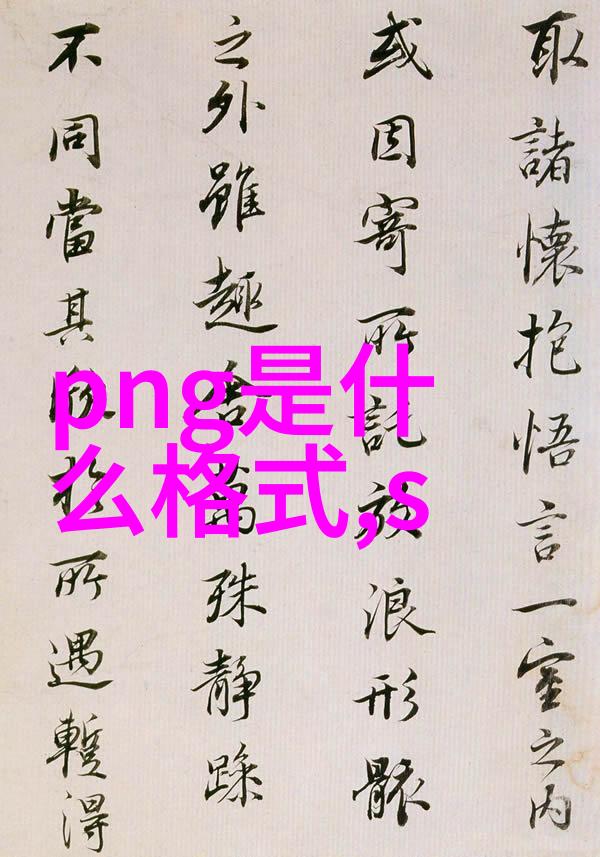 取諸懷抱悟言一室之内
或因寄所託放浪形骸
之外雖趣舍萬殊静躁
不同當其欣於所遇蹔得
png是什
么格式,s